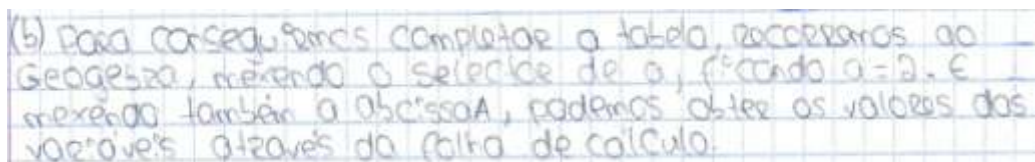 (b) Para conseguirmos completar a tabela, recorremos ao
Geogebra, mexendo o selector de a, ficando a=2. E
mexendo também a abcissaA, podemos obter os valores das
variáveis através da folha de cálculo.